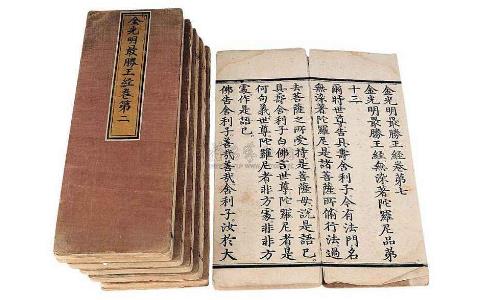 金光明㝡勝王經卷第二
金光明最勝王經卷第七
金光明最勝王經無染著陀羅尼品第
十三
爾時世尊告具壽舍利子今有法門名
無染著陀羅尼是諸菩薩所修行法過
去菩薩之所受持是菩薩母說是語已
具壽舍利子白佛言世尊陀羅尼者是
何句義世尊陀羅尼者非方處非非方
處作是語已
佛告舍利子善哉善哉舍利子汝於大